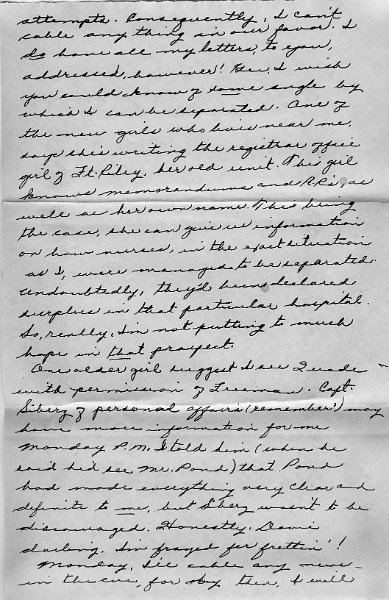 attempts. Consequently, I can't
cable anything in our favor. I
do have all my letters, to you,
addressed, however! Gee, I wish
you could know of some angle by
which I can be separated. One of
the new girls who lives near me,
says she's writing the registrar office
girl of Ft. Riley, her old unit. This girl
knows memorandums and R.R.s, as
well as her own name. This being
the case, she can give us information
on how nurses, in the exact situation
as I, were managed to be separated.
Undoubtedly, they'd been declared
surplus in that particular hospital.
So, really, I'm not putting to much
hope in that prospect.
One older girl suggest I see
with permission of Freeman. Capt.
of personal affairs (remember?) may
have more information for me
Monday P.M. I told him (when he
said he'd see Mr. Pond) that Pond
had made everything very clear and
definite to me, but wasn't to be
discouraged. Honestly,
darling, I'm frayed for frettin'!
Monday, I'll cable any news
in the , for by then, I will